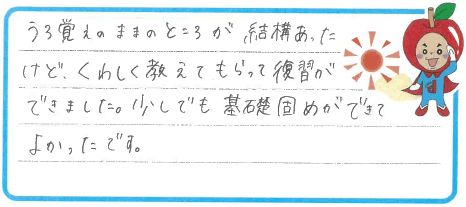 うろ覚えのままのところが、結構あった
けど、くわしく教えてもらって復習が
できました。少しでも基礎固めができて
よかったです。